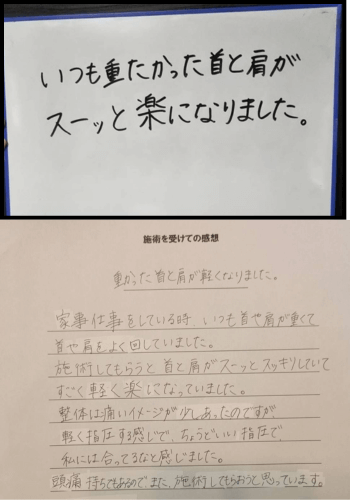 いつも重たかった首と肩が
スーッと楽になりました。
施術を受けての感想
重かった首と肩が軽くなりました。
家事仕事をしている時、いつも首や肩が重くて
首や肩をよく回していました。
施術してもらうと首と肩がスーっとスッキリしていて
すごく軽く楽になっていました。
整体は痛いイメージが少しあったのですが
軽く指圧する感じで、ちょうどいい指圧で、
私には合ってるなと感じました。
頭痛持ちでもあるのでまた、施術してもらおうと思っています。